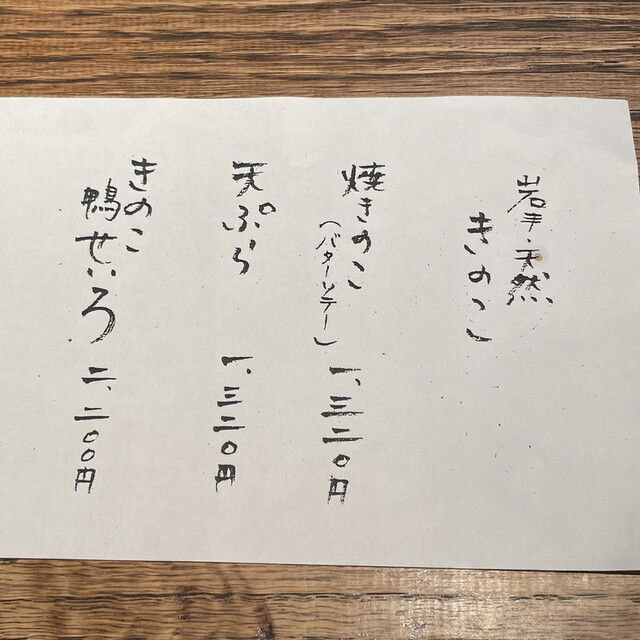 岩手・天然
きのこ
焼きのこ
(バターソテー)
一、三二〇円
天ぷら
一、三二〇円
きのこ
鴨せいろ
二、二〇〇円